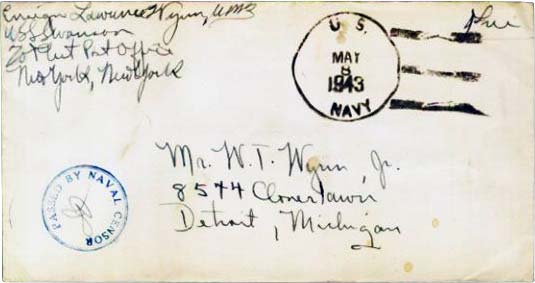 Ensign Lawrence Wynn, USNR
USS Swanson
℅ Fleet Post Office
New York, New York
Free
U. S.
MAY
8
1943
NAVY
Mr. W. T. Wynn, Jr.
8544 Cloverlawn
Detroit, Michigan
PASSED BY NAVAL CENSOR